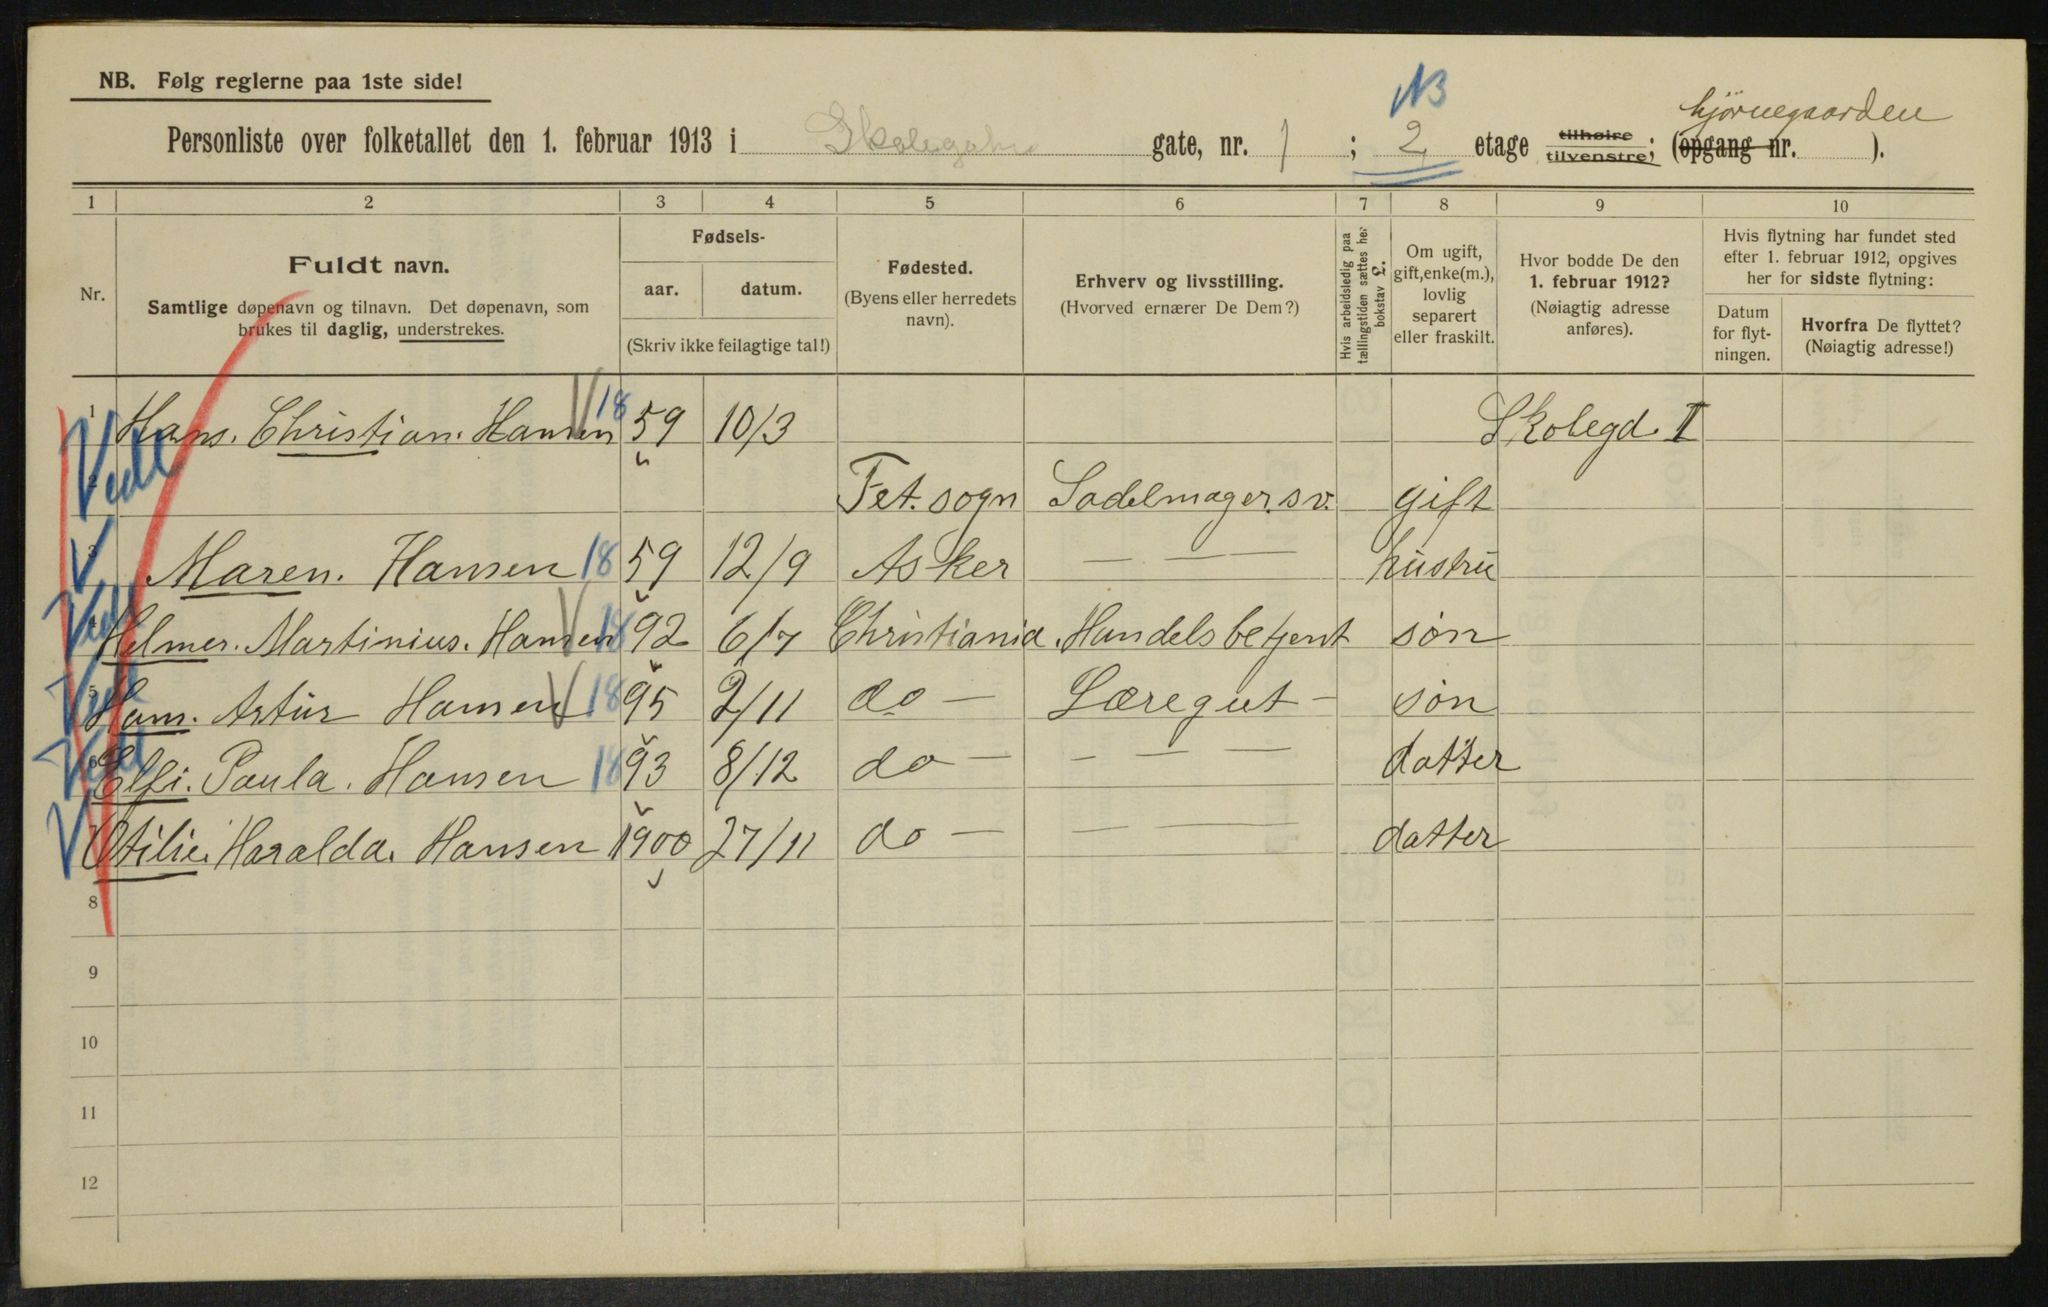 NB. Følg reglerne paa 1ste side!
NB
hjørnegaarden
Personliste over folketallet den 1. februar 1913 i gate, nr. 1 ; 2 etage tilhøire tilvenstre; (opgang nr. ).
1 2 3 4 5 6 7 8 9 10
Nr.
Fuldt navn.
Samtlige døpenavn og tilnavn. Det døpenavn, som
brukes til daglig, understrekes.
Fødsels-
aar. datum.
(Skriv ikke feilagtige tal!)
Fødested.
(Byens eller herredets
navn).
Erhverv og livsstilling.
(Hvorved ernærer De Dem?)
Hvis arbeidsledig paa
tællingstiden sættes her
bokstav L.
Om ugift,
gift, enke(m.),
lovlig
separert
eller fraskilt.
Hvor bodde De den
1. februar 1912?
(Nøiagtig adresse
anføres).
Hvis flytning har fundet sted
efter 1. februar 1912, opgives
her for sidste flytning:
Datum
for flyt-
ningen.
Hvorfra De flyttet?
(Nøiagtig adresse!)
1 Hans. Christian. Hansen 18 59 10/3 Skolegd. I
2 Fet. sogn Sadelmager. sv. gift
3 Maren. Hansen 18 59 12/9 Asker — — — hustru
4 Helmer. Martinius. Hansen 18 92 6/7 Christiania. Handelsbetjent søn
5 Hans. Artur Hansen 18 95 2/11 do — Læregut — søn
6 Elfi. Paula. Hansen 18 93 8/12 do — — — — datter
7 Otilie. Haralda. Hansen 1900 27/11 do — — — datter
8
9
10
11
12